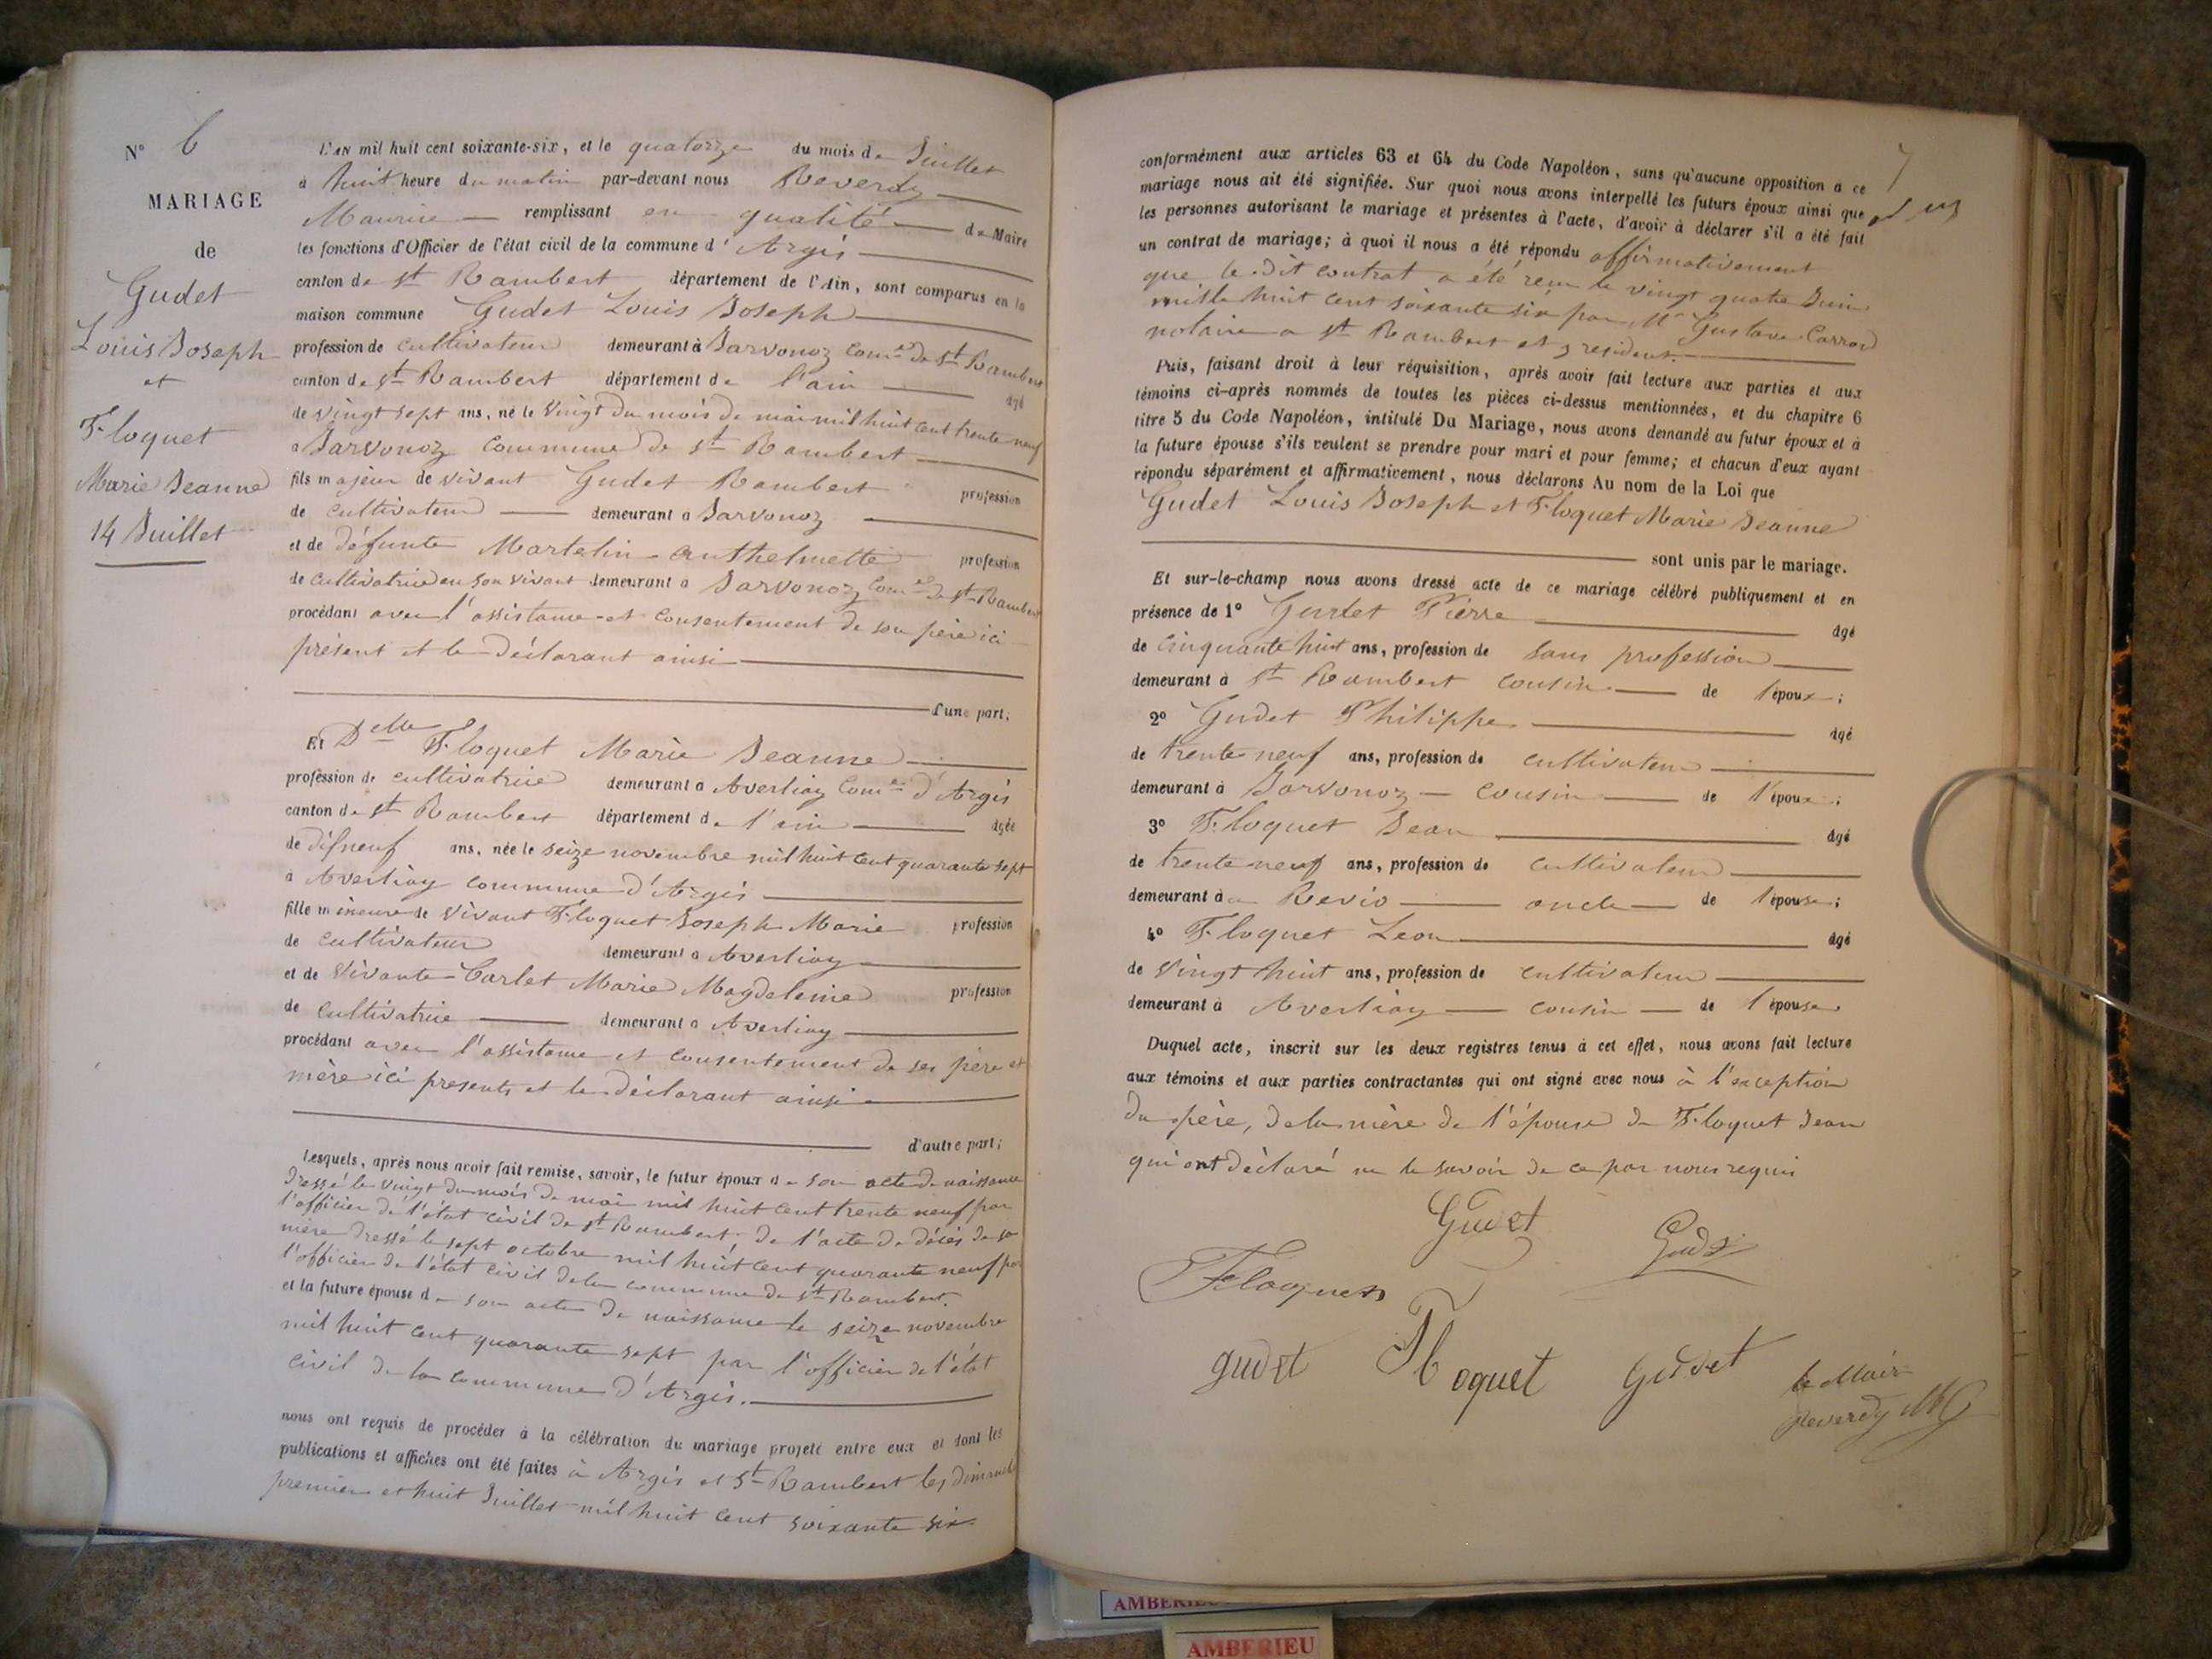 N° 6
MARIAGE
de
Gudet
Louis Joseph
et
Floquet
Marie Jeanne
14 Juillet
L'AN mil huit cent soixante-six, et le quatorze du mois de Juillet
à huit heure du matin par-devant nous Reverdy
Maurice remplissant en qualité de Maire
les fonctions d'Officier de l'état civil de la commune d'Argis
canton de St Rambert département de l'Ain, sont comparus en la
maison commune Gudet Louis Joseph
profession de cultivateur demeurant à Jarvonoz Comne de St Rambert
canton de St Rambert département de l'ain âgé
de vingt sept ans, né le vingt du mois de mai mil huit cent trente neuf
à Jarvonoz commune de St Rambert
fils majeur de vivant Gudet Rambert profession
de cultivateur demeurant à Jarvonoz
et de défunte Martelin anthelmette profession
de cultivatrice en son vivant demeurant à Jarvonoz Comne de St Rambert
procédant avec l'assistance et consentement de son père ici
présent et le déclarant ainsi
d'une part;
Et Delle Floquet Marie Jeanne
profession de cultivatrice demeurant à Averliaz Comne d'Argis
canton de St Rambert département de l'ain âgée
de difneuf ans, née le seize novembre mil huit cent quarante sept
à Averliaz commune d'Argis
fille mineure de vivant Floquet Joseph Marie profession
de cultivateur demeurant à Averliaz
et de vivante Carlet Marie Magdeleine profession
de cultivatrice demeurant à Averliaz
procédant avec l'assistance et consentement de ses père et
mère ici présents et le déclarant ainsi
d'autre part;
Lesquels, après nous avoir fait remise, savoir, le futur époux de son acte de naissance
dressé le vingt du mois de mai mil huit cent trente neuf par
l'officier de l'état civil de St Rambert, de l'acte de décès de sa
mère dressé le sept octobre mil huit cent quarante neuf par
l'officier de l'état civil de la commune de St Rambert.
et la future épouse de son acte de naissance le seize novembre
mil huit cent quarante sept par l'officier de l'état
civil de la commune d'Argis.
nous ont requis de procéder à la célébration du mariage projeté entre eux et dont les
publications et affiches ont été faites à Argis et St Rambert les dimanche
premier et huit Juillet mil huit cent soixante six
7
conformément aux articles 63 et 64 du Code Napoléon, sans qu'aucune opposition à ce
mariage nous ait été signifiée. Sur quoi nous avons interpellé les futurs époux ainsi que
les personnes autorisant le mariage et présentes à l'acte, d'avoir à déclarer s'il a été fait
un contrat de mariage; à quoi il nous a été répondu affirmativement
que le dit contrat a été reçu le vingt quatre Juin
mille huit cent soixante six par Me Gustave Carron
notaire a St Rambert et y résident.
Puis, faisant droit à leur réquisition, après avoir fait lecture aux parties et aux
témoins ci-après nommés de toutes les pièces ci-dessus mentionnées, et du chapitre 6
titre 5 du Code Napoléon, intitulé Du Mariage, nous avons demandé au futur époux et à
la future épouse s'ils veulent se prendre pour mari et pour femme; et chacun d'eux ayant
répondu séparément et affirmativement, nous déclarons Au nom de la Loi que
Gudet Louis Joseph et Floquet Marie Jeanne
sont unis par le mariage.
Et sur-le-champ nous avons dressé acte de ce mariage célébré publiquement et en
présence de 1° Gudet Pierre âgé
de cinquante huit ans, profession de sans profession
demeurant à St Rambert cousin de l'époux;
2° Gudet Philippe âgé
de trente neuf ans, profession de cultivateur
demeurant à Jarvonoz cousin de l'époux;
3° Floquet Jean âgé
de trente neuf ans, profession de cultivateur
demeurant à Revio oncle de l'épouse;
4° Floquet Leon âgé
de vingt huit ans, profession de cultivateur
demeurant à Averliaz cousin de l'épouse
Duquel acte, inscrit sur les deux registres tenus à cet effet, nous avons fait lecture
aux témoins et aux parties contractantes qui ont signé avec nous à l'exception
du père, de la mère de l'épouse de Floquet Jean
qui ont déclaré ne le savoir de ce par nous requis
Gudet Gudet
Floquet
gudet Floquet Gudet le Maire
Reverdy
AMBERIEU
AMBERIEU